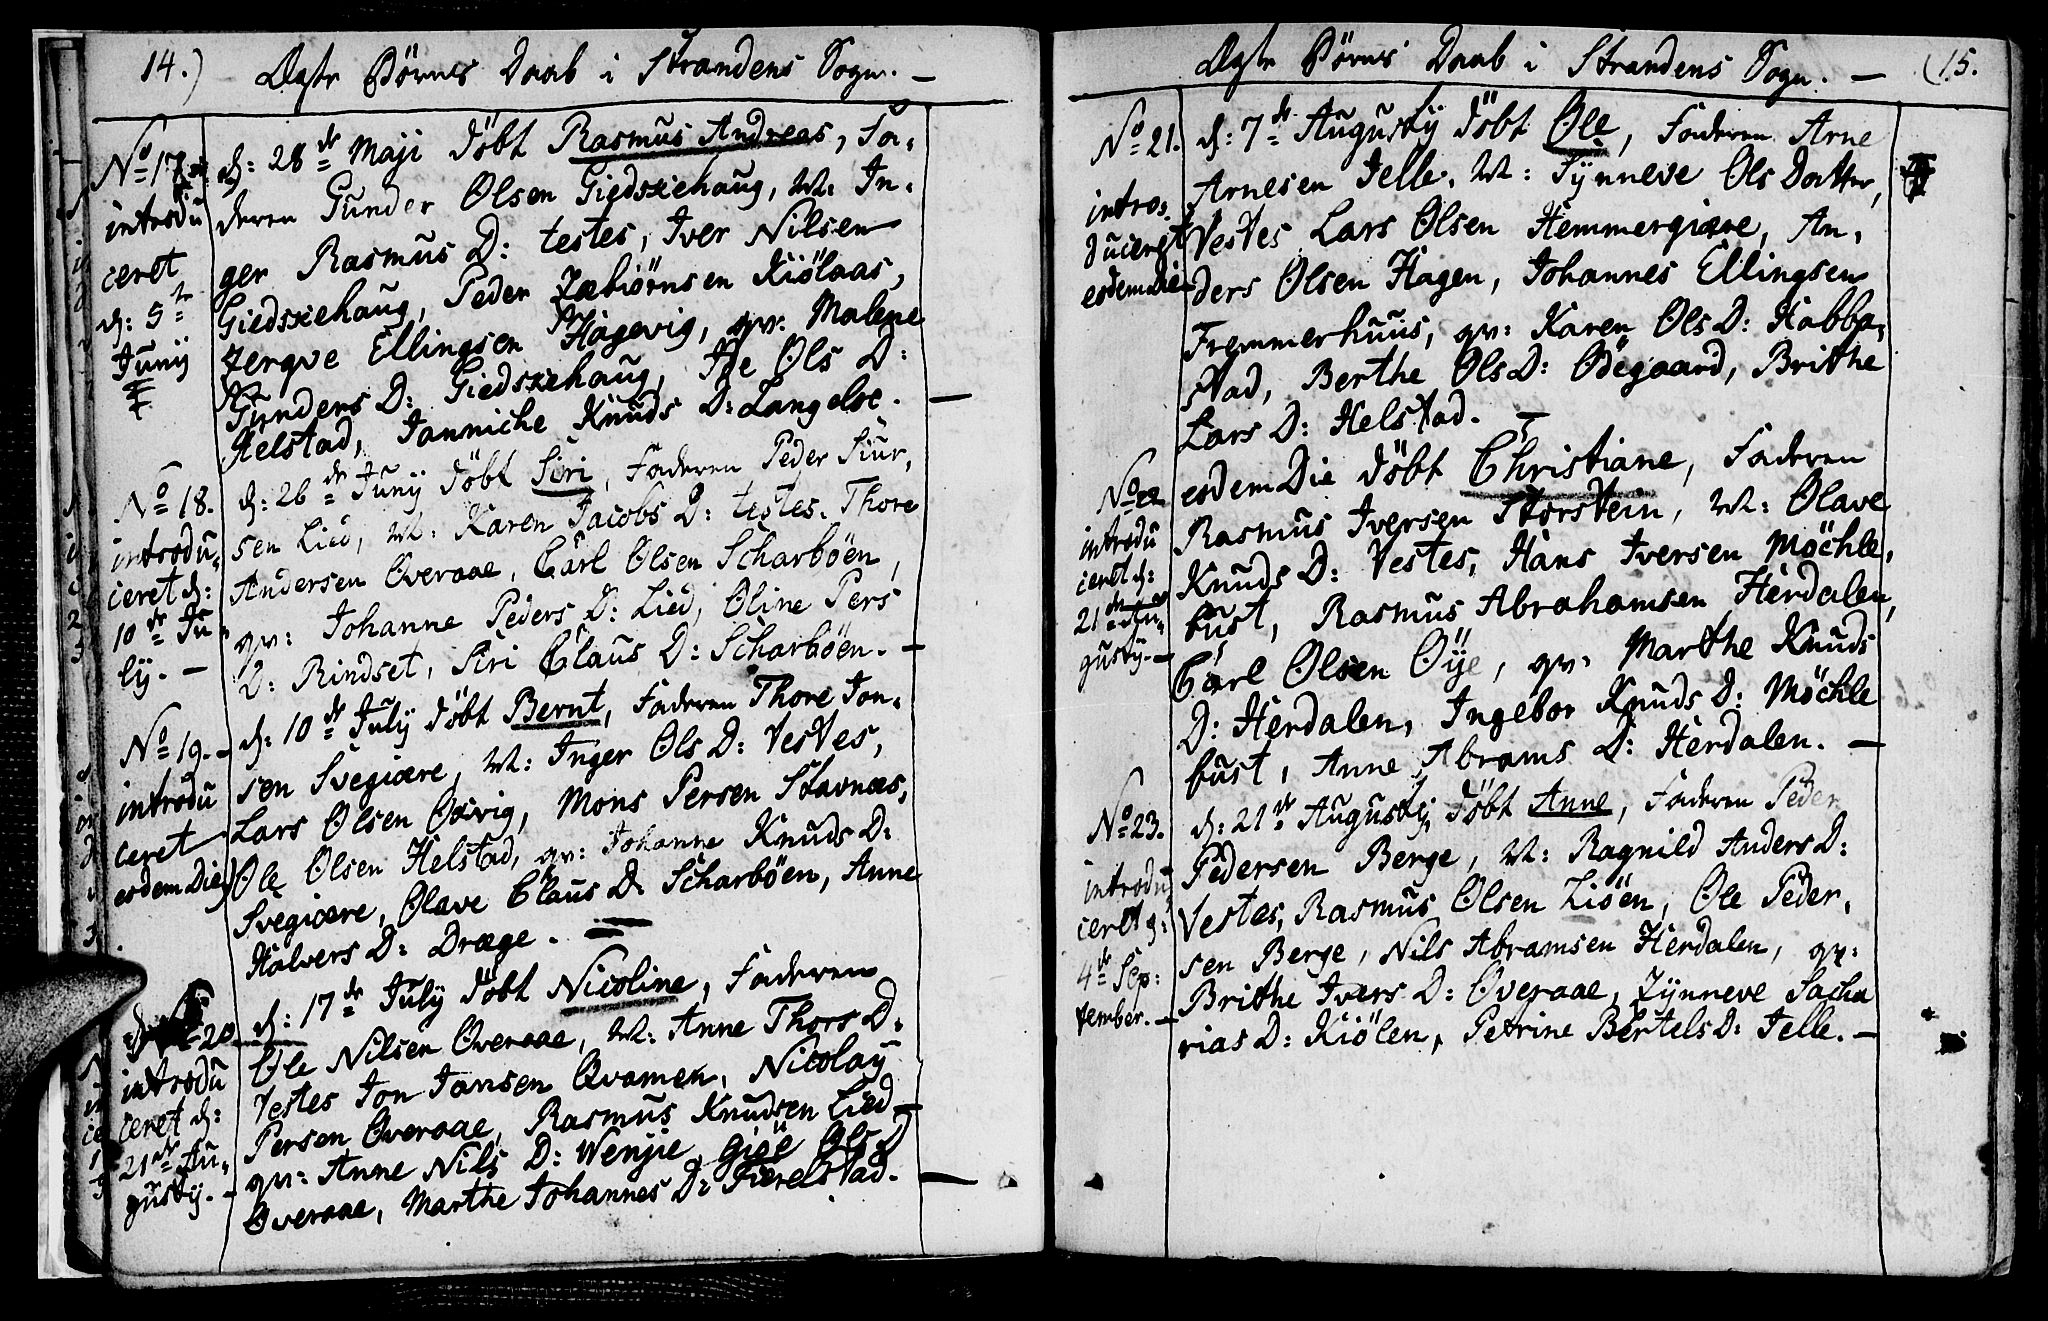 14.) Ægte Börnes Daab i Strandens Sogn. —
No 17.
introdu
ceret
d: 5te
Junij
d: 28de Maji döbt Rasmus Andreas, Fa,
deren Gunder Olsen Giedskehaug, M: In,
ger Rasmus D: testes, Iver Nilsen
Giedskehaug, Peder Zebiörnsen Kiölaas,
Jergve Ellingsen Hagevig, qv: Malene
Gunders D: Giedskehaug, Ide Ols D:
Helstad, Jannicke Knuds D: Langeloe. —
No 18.
introdu,
ceret d:
10de Ju
ly. —
d: 26de Junij döbt Siri, Faderen Peder Siur,
sen Lied, M: Karen Jacobs D: testes. Thore
Andersen Overaae, Carl Olsen Scharböen,
qv: Johanne Peders D: Lied, Oline Pers
D: Rindset, Siri Claus D: Scharböen. —
No 19. —
introdu
ceret
eodem Die)
d: 10de July döbt Bernt, Faderen Thore Jon,
sen Svegiære, M: Inger Ols D: testes,
Lars Olsen Ovrig, Mons Persen Stavnæs,
Ole Olsen Helstad, qv: Johanne Knuds D:
Svegiære, Olave Claus D: Scharböen, Anne
Halvers D: Dræge. —
20
introdu
ceret d:
21de Au,
gustij. —
d: 17de July döbt Nicoline, Faderen
Ole Nilsen Overaae, M: Anne Thors D:
testes Jon Jansen Qvamen, Nicolay
Persen Overaae, Rasmus Knudsen Lied
qv: Anne Nils D: Wenjie, Giöe Ols D
Overaae, Marthe Johannes D: Fierelstad. —
Ægte Börnes Daab i Strandens Sogn. — (15.
No 21.
intro,
duceret
eodem Die
d: 7de Augustij döbt Ole, Faderen Arne
Arnesen Jelle, M: Synneve Ols Datter,
testes Lars Olsen Hemmergiære, An,
ders Olsen Hagen, Johannes Ellingsen
Fremmerhuus, qv: Karen Ols D: Habbo,
stad, Berthe Ols D: Ödegaard, Brithe
Lars D: Helstad. —
No 22
introdu
ceret d:
21de Au,
gustij. —
eodem Die döbt Christiane, Faderen
Rasmus Iversen Storstein, M: Olave
Knuds D: testes, Hans Iversen Möchle,
bust, Rasmus Abrahamsen Herdalen,
Carl Olsen Öije, qv: Marthe Knuds
D: Herdalen, Ingebor Knuds D: Möchle
bust, Anne Abrams D: Herdalen. —
No 23.
introdu
ceret d:
4de Sep:
tember. —
d: 21de Augustij döbt Anne, Faderen Peder
Pedersen Berge, M: Ragnild Anders D:
testes, Rasmus Olsen Liöen, Ole Peder,
sen Berge, Nils Abramsen Herdalen, qv:
Brithe Ivers D: Overaae, Synneve Sacha
rias D: Kiölen, Petrine Bertels D: Jelle. —